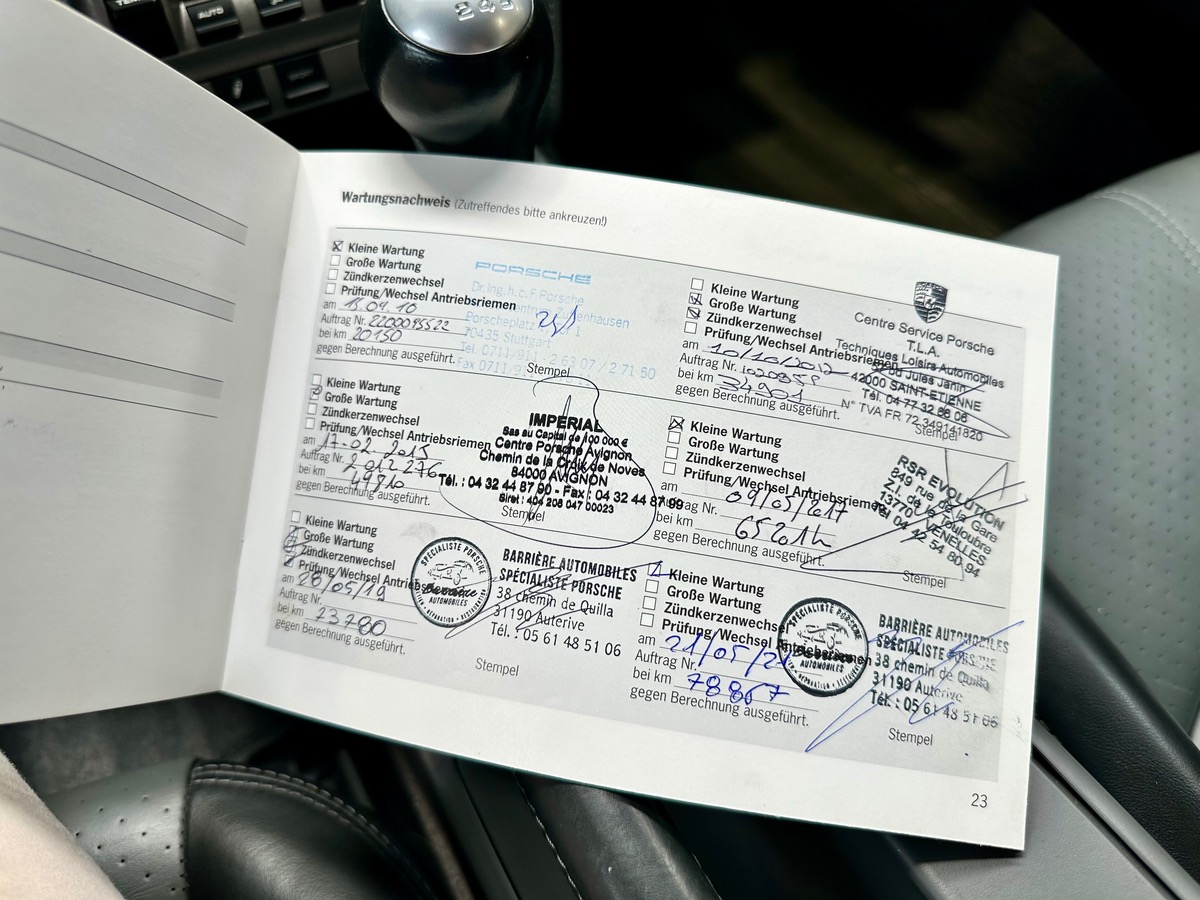 AUTO
246
Wartungsnachweis (Zutreffendes bitte ankreuzen!)
Kleine Wartung
Große Wartung
Zündkerzenwechsel
Prüfung/Wechsel Antriebsriemen
am 15.04.10
Auftrag Nr.
bei km 20150
gegen Berechnung ausgeführt.
PORSCHE
Dr. Ing. h.c. F. Porsche
Porscheplatz 1
70435 Stuttgart
Tel. 0711/911 - 2 63 07 / 2 71 50
Fax 0711/911
Stempel
Kleine Wartung
Große Wartung
Zündkerzenwechsel
Prüfung/Wechsel Antriebsriemen
am 10/10/2012
Auftrag Nr.
bei km 34901
gegen Berechnung ausgeführt.
Centre Service Porsche
T.L.A.
Techniques Loisirs Automobiles
Jules Janin
42000 SAINT-ETIENNE
Tél. 04 77 32 66 06
N° TVA FR 72 349141820
Stempel
Kleine Wartung
Große Wartung
Zündkerzenwechsel
Prüfung/Wechsel Antriebsriemen
am 17-02-2015
Auftrag Nr. 2012276
bei km 49810
gegen Berechnung ausgeführt.
IMPERIAL
Sas au Capital de 100 000 €
Centre Porsche Avignon
Chemin de la Croix de Noves
84000 AVIGNON
Tél. : 04 32 44 87 90 - Fax : 04 32 44 87 99
Siret : 404 208 047 00023
Stempel
Kleine Wartung
Große Wartung
Zündkerzenwechsel
Prüfung/Wechsel Antriebsriemen
am 09/05/2017
Auftrag Nr.
bei km 65201
gegen Berechnung ausgeführt.
RSR EVOLUTION
849 rue de la Gare
Z.I. de la Touloubre
13770 VENELLES
Tél 04 42 54 80 94
Stempel
Kleine Wartung
Große Wartung
Zündkerzenwechsel
Prüfung/Wechsel Antriebsriemen
am 28/05/19
Auftrag Nr.
bei km 73780
gegen Berechnung ausgeführt.
SPÉCIALISTE PORSCHE
Barrière
AUTOMOBILES
BARRIÈRE AUTOMOBILES
SPÉCIALISTE PORSCHE
38 chemin de Quilla
31190 Auterive
Tél. : 05 61 48 51 06
Stempel
Kleine Wartung
Große Wartung
Zündkerzenwechsel
Prüfung/Wechsel Antriebsriemen
am 21/05/21
Auftrag Nr.
bei km 78867
gegen Berechnung ausgeführt.
SPÉCIALISTE PORSCHE
Barrière
AUTOMOBILES
BARRIÈRE AUTOMOBILES
SPÉCIALISTE PORSCHE
38 chemin de Quilla
31190 Auterive
Tél. : 05 61 48 51 06
Stempel
23